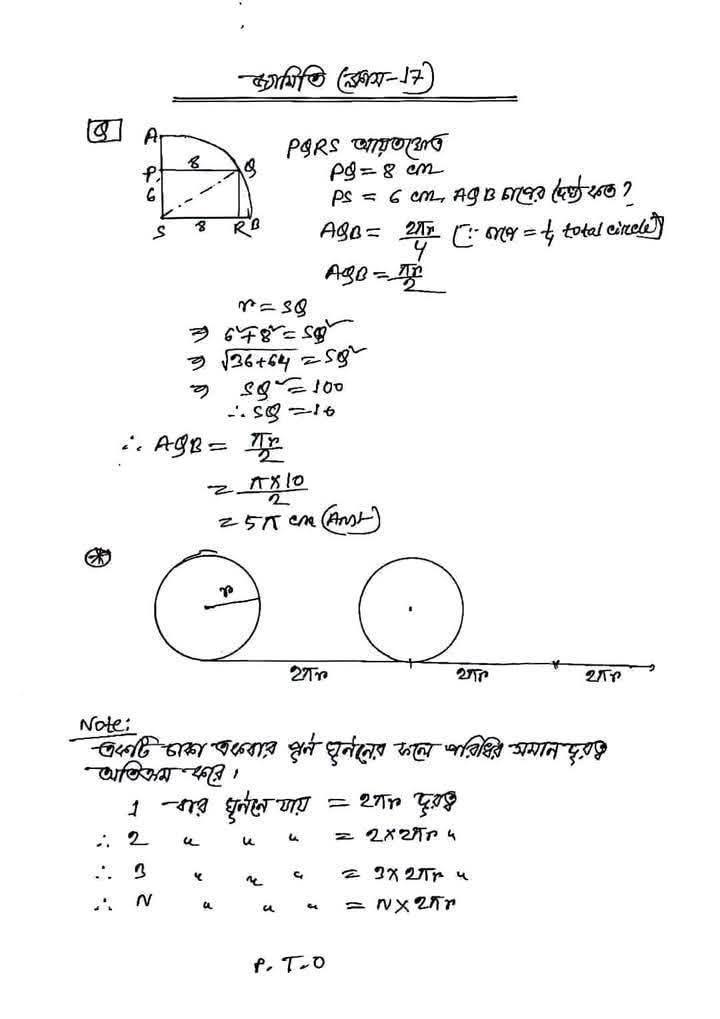 জ্যামিতি (ক্লাস-17)
Q
A
P
8
Q
6
S
8
R B
PQRS আয়তক্ষেত্র
PQ = 8 cm
PS = 6 cm, AQB চাপের দৈর্ঘ্য কত ?
AQB = 2πr/4 [∵ চাপ = 1/4 total circle]
AQB = πr/2
r = SQ
⇒ 6² + 8² = SQ²
⇒ √36+64 = SQ²
⇒ SQ² = 100
∴ SQ = 10
∴ AQB = πr/2
= π×10/2
= 5π cm (Ans)
r
2πr 2πr 2πr
Note:
একটি চাকা একবার পূর্ন ঘূর্ননের ফলে পরিধির সমান দূরত্ব
অতিক্রম করে।
1 বার ঘূর্ননে যায় = 2πr দূরত্ব
∴ 2 " " " = 2×2πr "
∴ 3 " " " = 3×2πr "
∴ N " " " = N×2πr
P. T. O